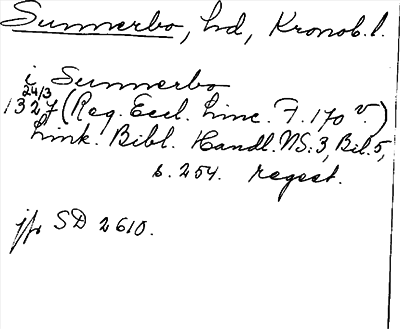 Sunnerbo, hd, Kronob. l.
i Sunnerbo
24/3
1327 (Reg. Eccl. Linc. F. 170 v.)
Link. Bibl. Handl. NS: 3, Bil. 5,
s. 254. regest.
jfr SD 2610.